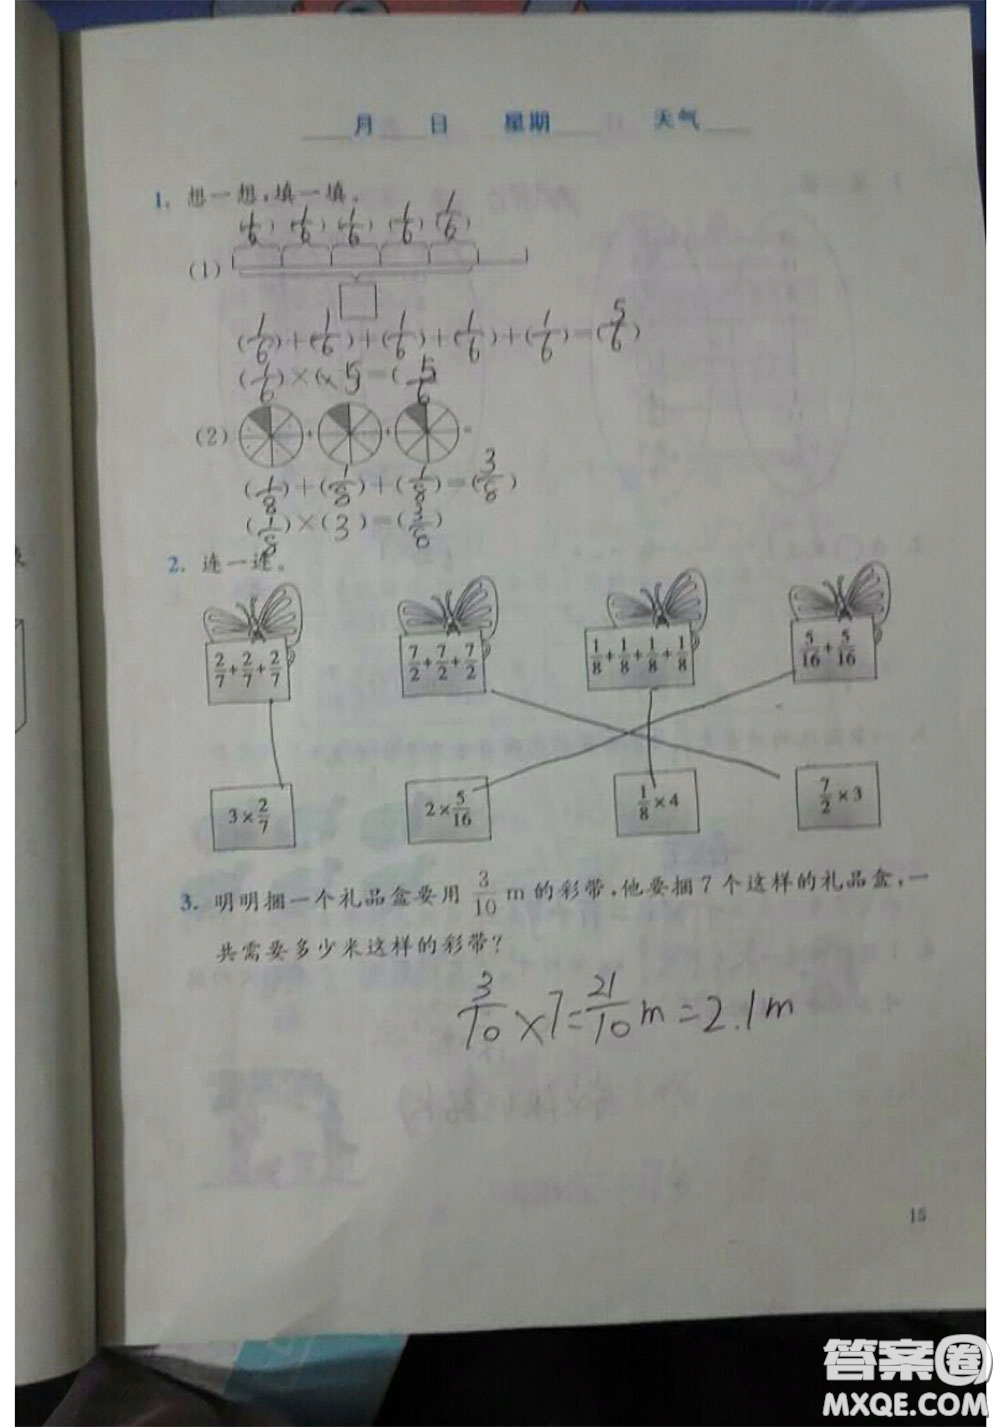 月 日 星期 天气
1. 想一想,填一填。
(1/6) (1/6) (1/6) (1/6) (1/6)
(1)
(1/6)+(1/6)+(1/6)+(1/6)+(1/6)=(5/6)
(1/6)×(×5)=(5/6)
(2) + + =
(1/8)+(1/8)+(1/8)=(3/8)
(1/8)×(3)=(3/8)
2. 连一连。
2/7+2/7+2/7 7/2+7/2+7/2 1/8+1/8+1/8+1/8 5/16+5/16
3×2/7 2×5/16 1/8×4 7/2×3
3. 明明捆一个礼品盒要用 3/10 m 的彩带,他要捆7个这样的礼品盒,一
共需要多少米这样的彩带?
3/10×7=21/10m=2.1m
15
答案圈
MXQE.COM